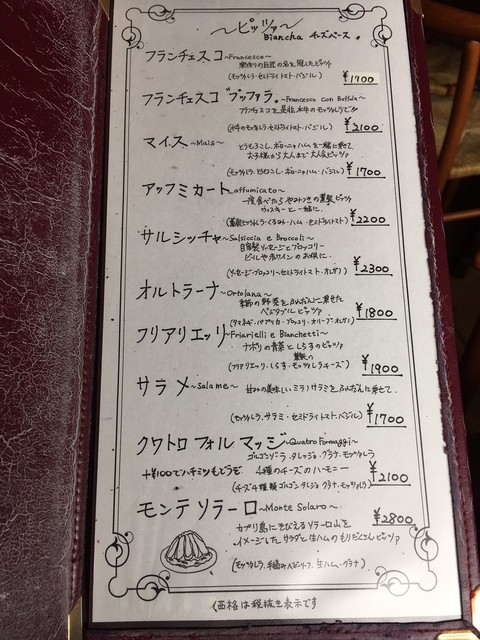 〜ピッツァ〜
Biancha チーズベース
フランチェスコ〜Francesco〜
(モッツァレラ・セミドライトマト・バジル)
¥1700
フランチェスコ ブッファラ 〜Francesco con Buffala〜
フランチェスコを是非、水牛のモッツァレラで
(水牛のモッツァレラ・セミドライトマト・バジル)
¥2100
マイス 〜Mais〜
とうもろこし、ボローニャハムを一緒に乗せて
お子様から大人まで大人気ピッツァ
¥1700
アッフミカート affumicato〜
一度食べたらやみつきの薫製ピッツァ
ウィスキーと一緒に
¥2200
サルシッチャ〜Salsiccia e Broccoli〜
自家製ソーセージとブロッコリー
ビールや赤ワインのお供に
(ソーセージ・ブロッコリー・セミドライトマト・オレガノ)
¥2300
オルトラーナ〜Ortolana〜
季節の野菜をふんだんに乗せた
ベジタブルピッツァ
(タマネギ・パプリカ・ブロッコリ・オリーブ・オレガノ)
¥1800
フリアリエッリ〜Friarielli e Bianchetti〜
ナポリの青菜としらすのピッツァ
(フリアリエッリ・しらす・モッツァレラチーズ)
¥1900
サラメ〜Salame〜
甘みの美味しいミラノサラミをふんだんに乗せて
(モッツァレラ、サラミ・セミドライトマト・バジル)
¥1700
クワトロ フォルマッジ〜Quattro Formaggi〜
ゴルゴンゾーラ、タレッジョ、グラナ、モッツァレラ
+¥100でハチミツもどうぞ 4種のチーズのハーモニー
(チーズ4種類 ゴルゴン タレジョ グラナ、モッツァレラ)
¥2100
モンテ ソラーロ〜Monte Solaro〜
カプリ島にそびえるソラーロ山を
イメージしたサラダと生ハムのもりだくさんピッツァ
¥2800
価格は税抜き表示です